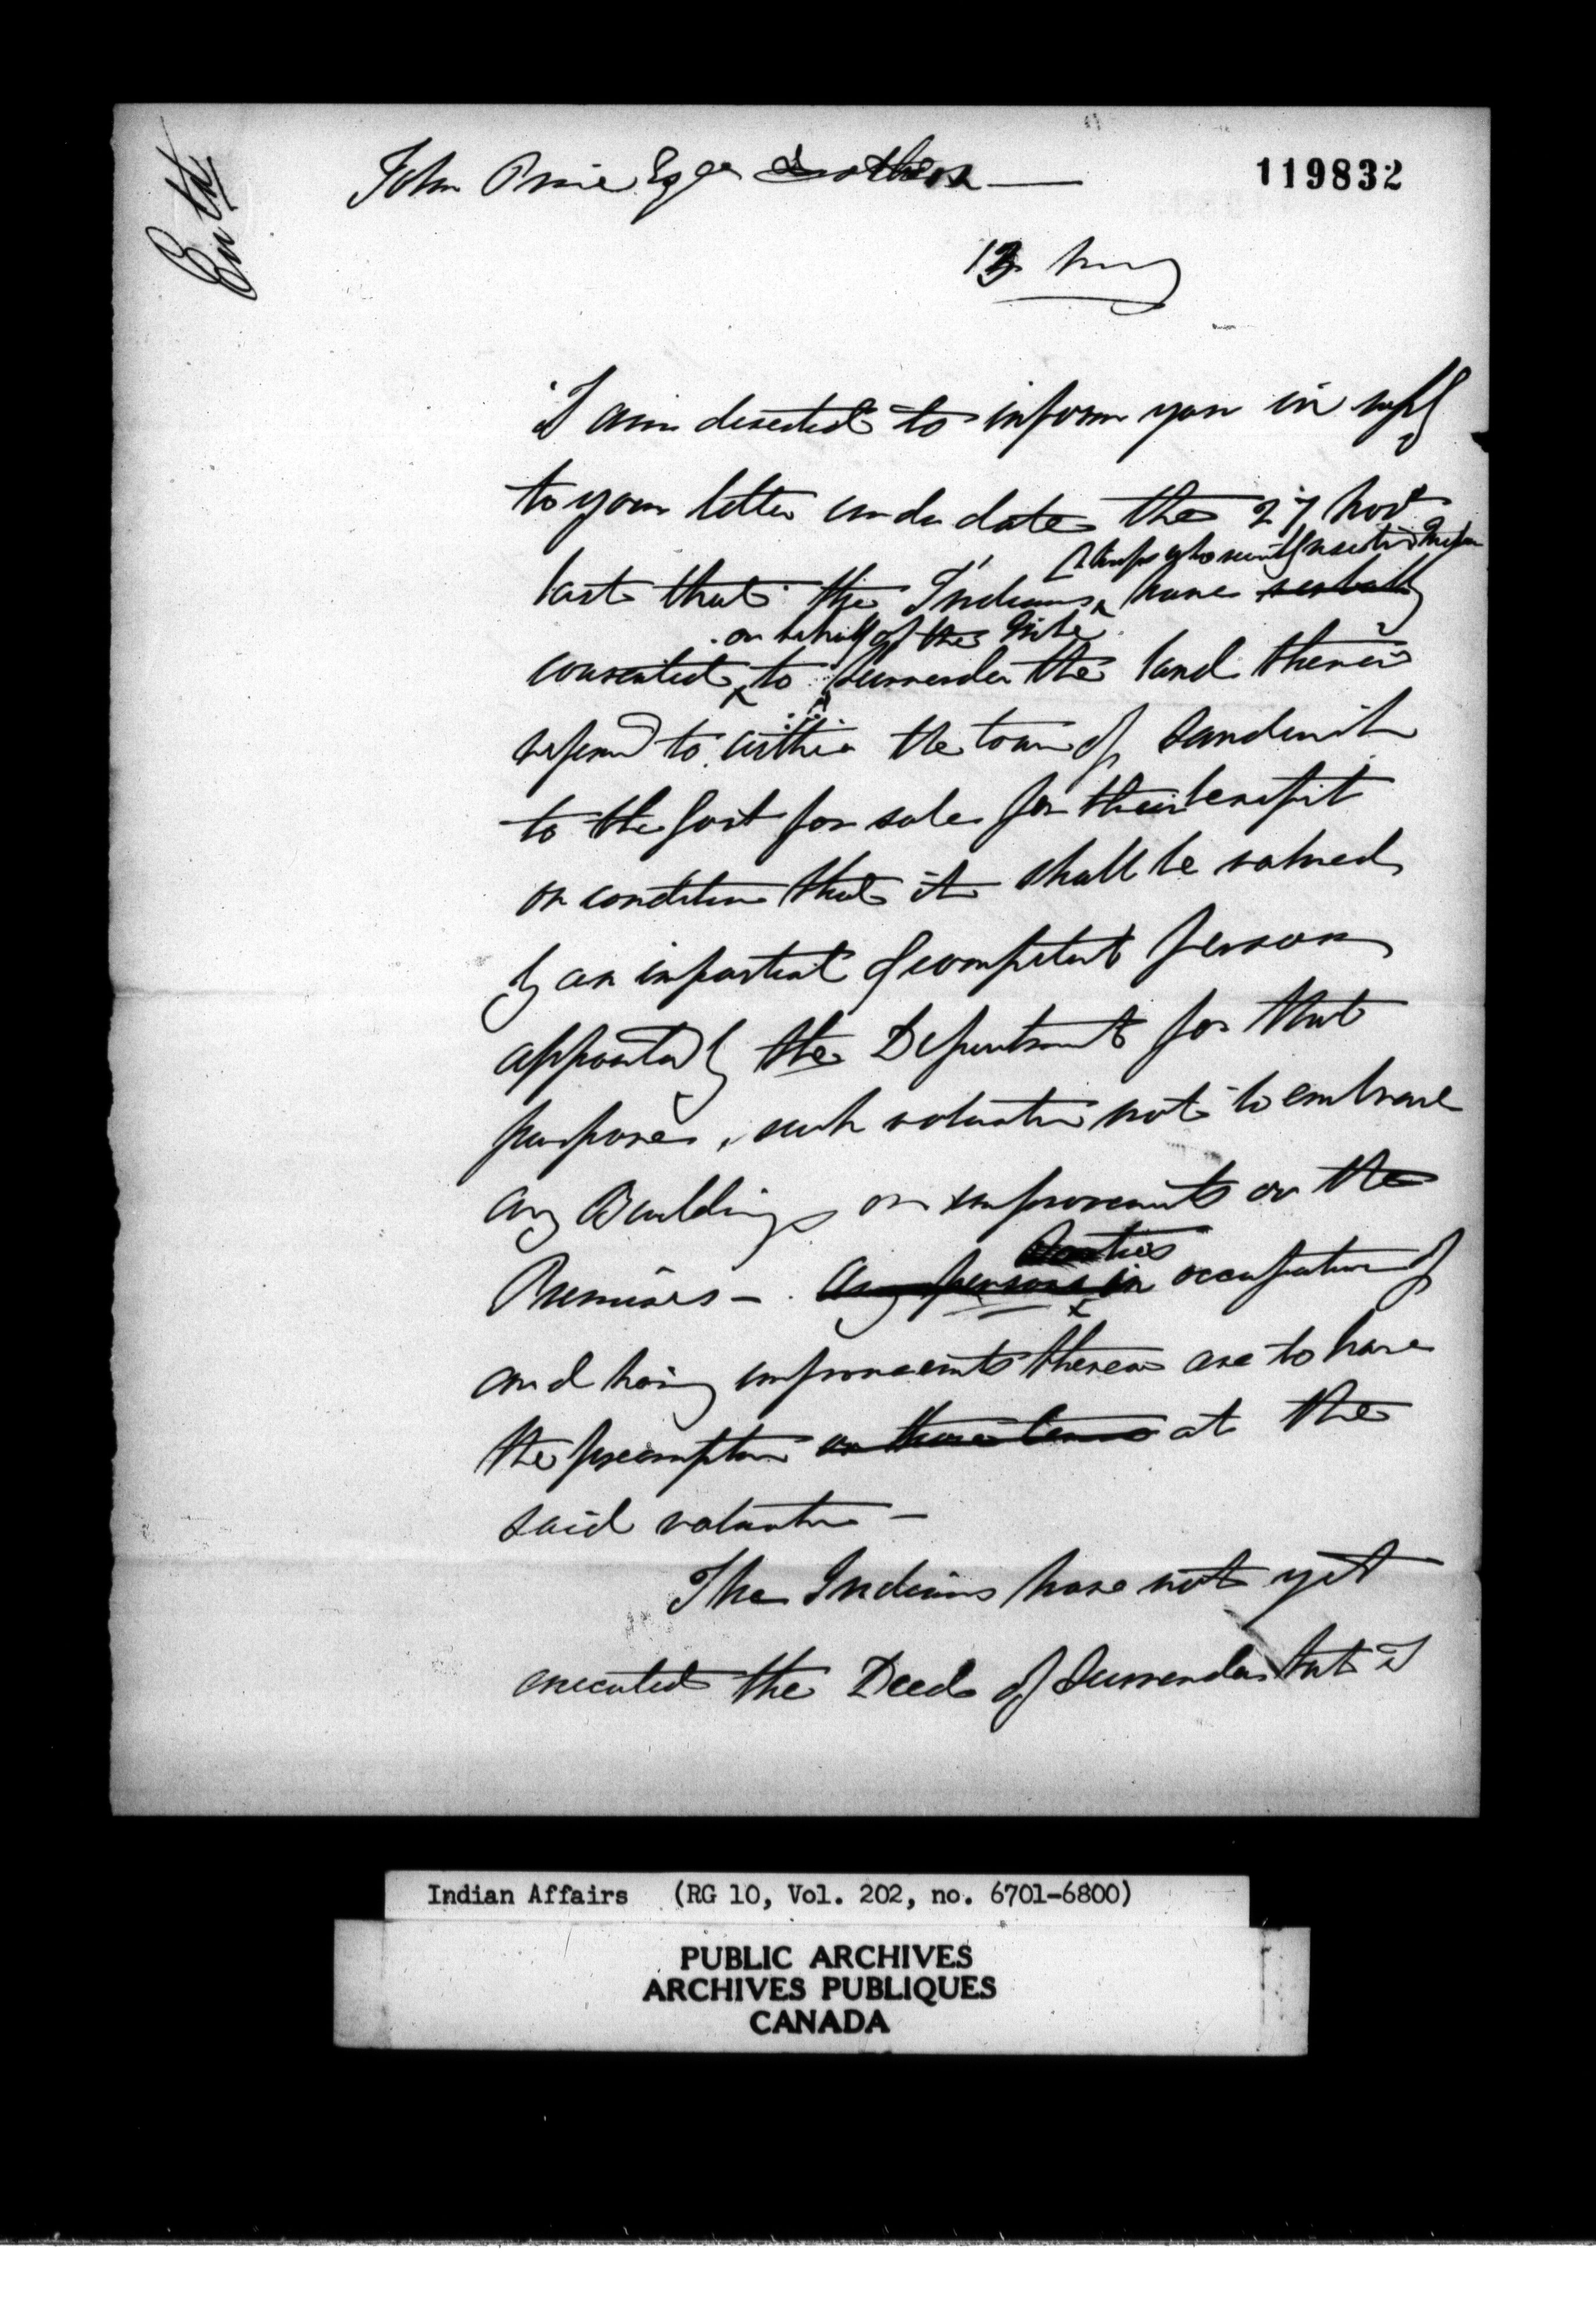 Entd
119832
John Prince Esqre
13 Aug
I am directed to inform you in reply
to your letter under date the 27 Novr
last that the Indians have verbally
on behalf of the Tribe
consented to surrender the land therein
referred to within the town of Sandwich
to the Govt for sale for their benefit
on condition that it shall be valued
by an impartial & competent person
appointed by the Department for that
purpose, such valuation not to embrace
any Buildings or improvements on the
Parties
Premises - Any persons in occupation of
and having improvements thereon are to have
the preemption on these terms at the
said valuation -
The Indians have not yet
executed the Deed of Surrender but I
Indian Affairs (RG 10, Vol. 202, no. 6701-6800)
PUBLIC ARCHIVES
ARCHIVES PUBLIQUES
CANADA